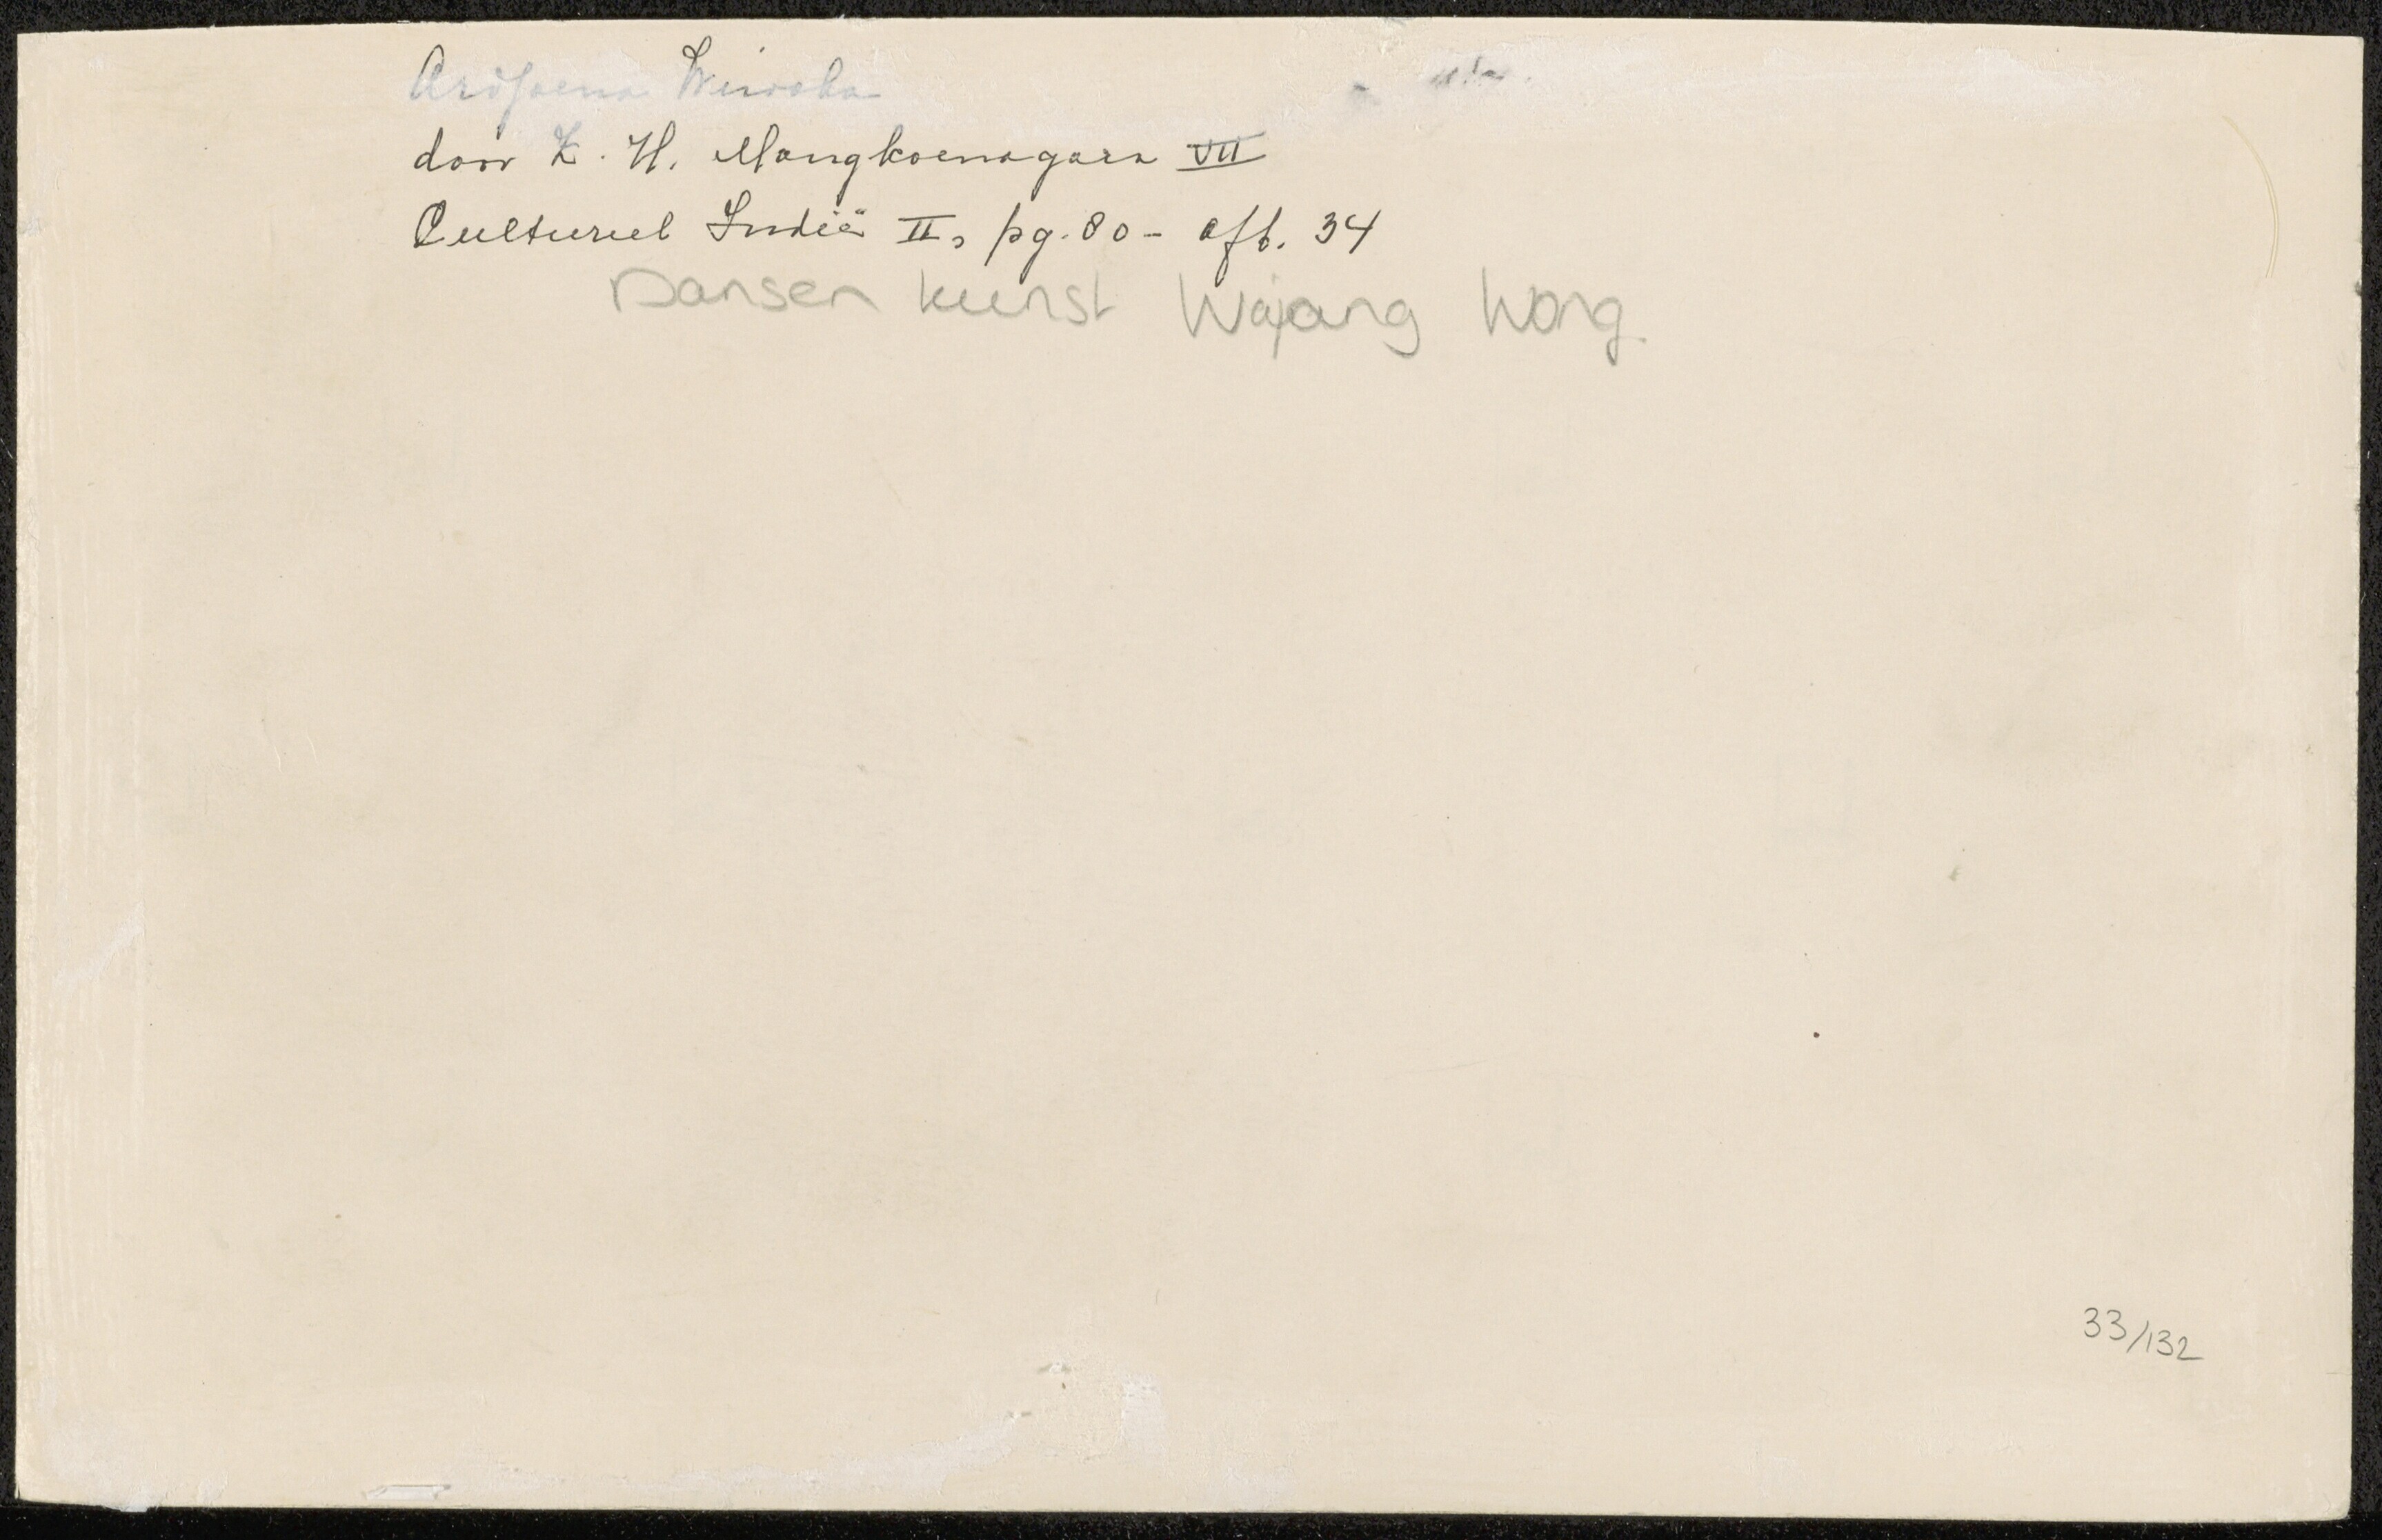 Ardjoena Wiwaha
door Z. H. Mangkoenagara VII
Cultureel Indië II, pg. 80 - afb. 34
Dansen kunst Wajang Wong.
33/132